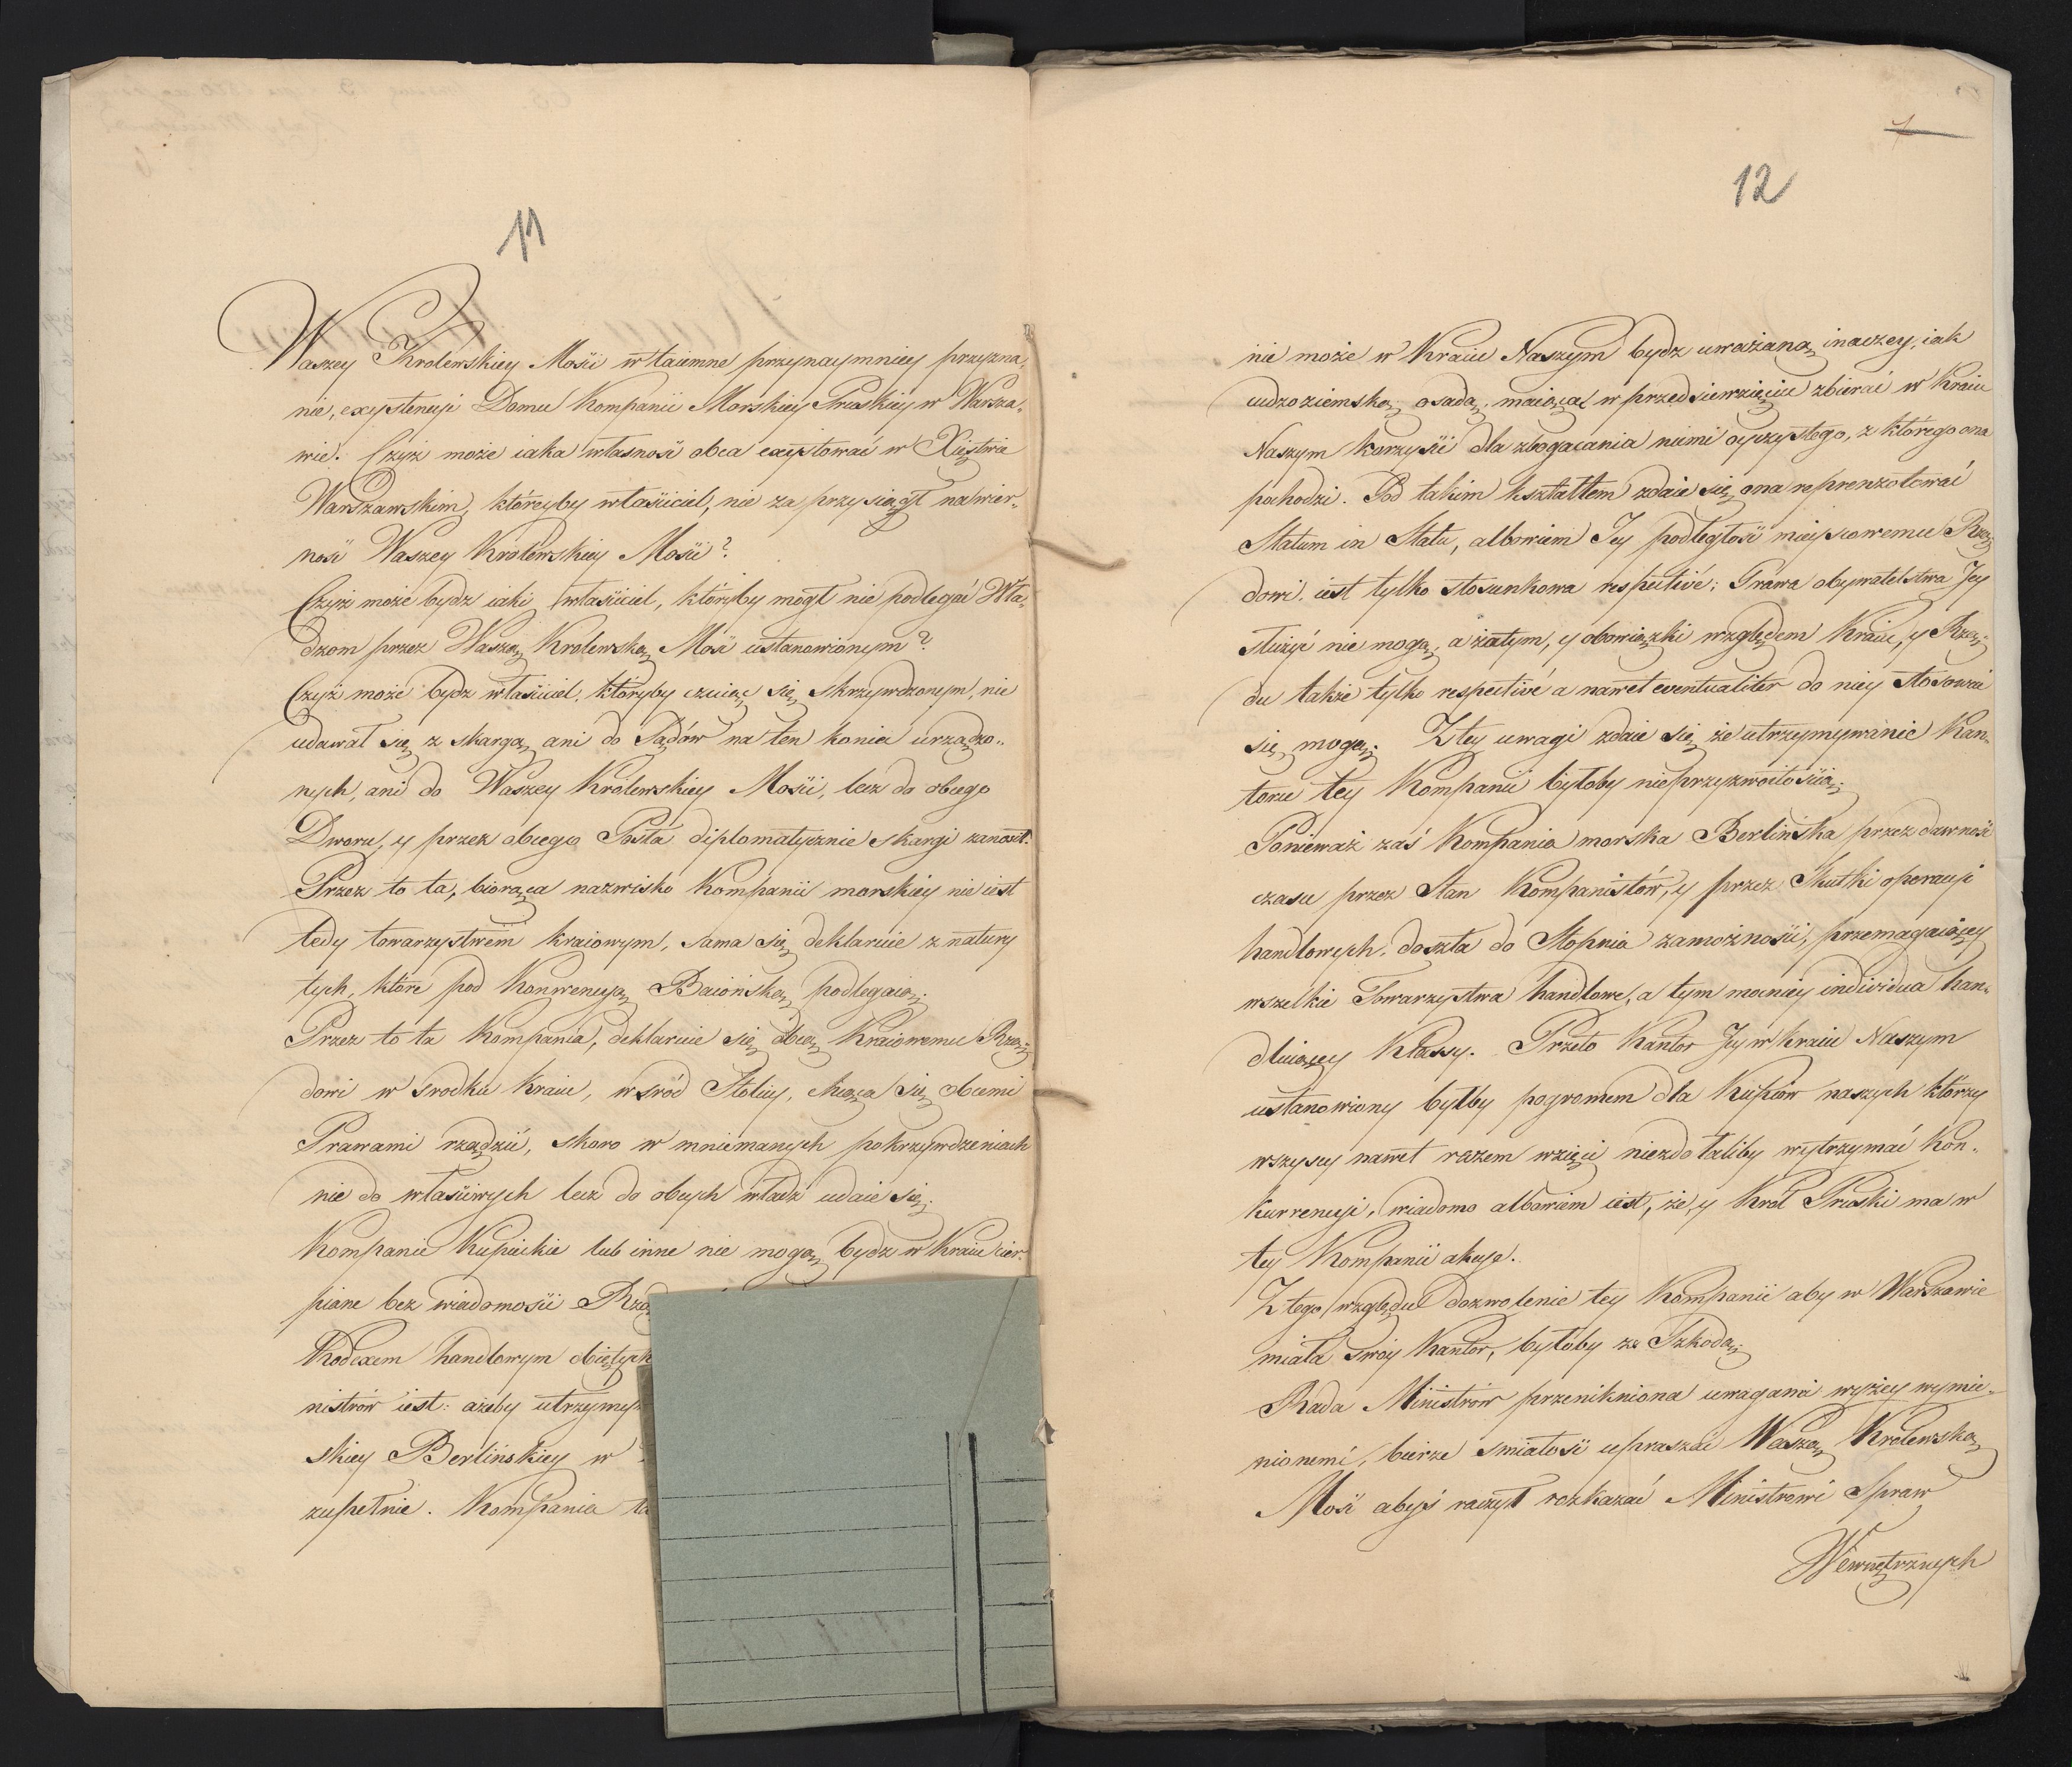 11
Waszey Krolewskiey Mości w taiemne przynaymniey przyzna„
nie, exystencyi Domu Kompanii Morskiey Pruskiey w Warsza„
wie. Czyż może iaka własność obca exystować w Xięstwie
Warszawskim, któreyby właściciel, nie zaprzysiągł na wier„
ność Waszey Królewskiey Mości?
Czyż może bydz iaki właściciel, któryby mógł nie podlegać Wła„
dzom przez Waszą Krolewską Mość ustanowionym?
Czyż może bydz właściciel, któryby czuiąc się skrzywdzonym, nie
udawał się z skargą ani do Sądów na ten koniec urządzo„
nych, ani do Waszey Królewskiey Mości, lecz do obcego
Dworu, y przez obcego Posła diplomatycznie skargi zanosił.
Przez to ta, biorąca nazwisko Kompanii morskiey nie iest
tedy towarzystwem kraiowym, sama się deklaruie z natury
tych, które pod Konwencyą Baiońską podlegaią.
Przez to ta Kompania, deklaruie się obcą Kraiowemu Rzą„
dowi w srodku Kraiu, wsród Stolicy, chcąca się obcemi
Prawami rządzić, skoro w mniemanych pokrzywdzeniach
nie do właściwych lecz do obcych władz udaie się.
Kompanie Kupieckie lub inne nie mogą bydz w Kraiu cier„
piane bez wiadomości Rzą
Kodexem handlowym obiętych
nistrów iest: ażeby utrzymy
skiey Berlińskiey w
zupełnie. Kompania ta
12
nie może w Kraiu Naszym bydz uważaną inaczey, iak
cudzoziemską osadą, maiącą w przedsiewzięciu zbierać w Kraiu
Naszym korzyści dla zbogacania niemi oyczystego, z którego ona
pochodzi. Pod takim kształtem zdaie się ona reprenzotować
Statum in Statu, albowiem Jey podległość mieyscowemu Rzą„
dowi, iest tylko stosunkowa respective; Prawa obywatelstwa Jey
służyć nie mogą, a zatym, y obowiązki względem Kraiu, y Rzą„
du także tylko respective a nawet eventualiter do niey stosować
się mogą. Z tey uwagi zdaie się że utrzymywanie Kan„
toru tey Kompanii byłoby nieprzyzwoitością.
Ponieważ zaś Kompania morska Berlińska przez dawność
czasu przez Stan Kompanistów, y przez Skutki operacyi
handlowych, doszła do Stopnia zamożności, przemagaiącey
wszelkie Towarzystwa handlowe, a tym mocniey individua han„
dluiącey Klassy. Przeto Kantor Jey w kraiu Naszym
ustanowiony byłby pogromem dla Kupców naszych którzy
wszyscy nawet razem wzięci niezdołaliby wytrzymać Kon„
kurrencyi, wiadomo albowiem iest, że y Król Pruski ma w
tey Kompanii akcye.
Z tego względu dozwolenie tey Kompanii aby w Warszawie
miała swóy Kantor, byłoby ze Szkodą.
Rada Ministrów przenikniona uwagami wyżey wymie„
nionemi, bierze śmiałość upraszać Waszą Krolewską
Mość abyś raczył rozkazać Ministrowi Spraw
Wewnętrznych